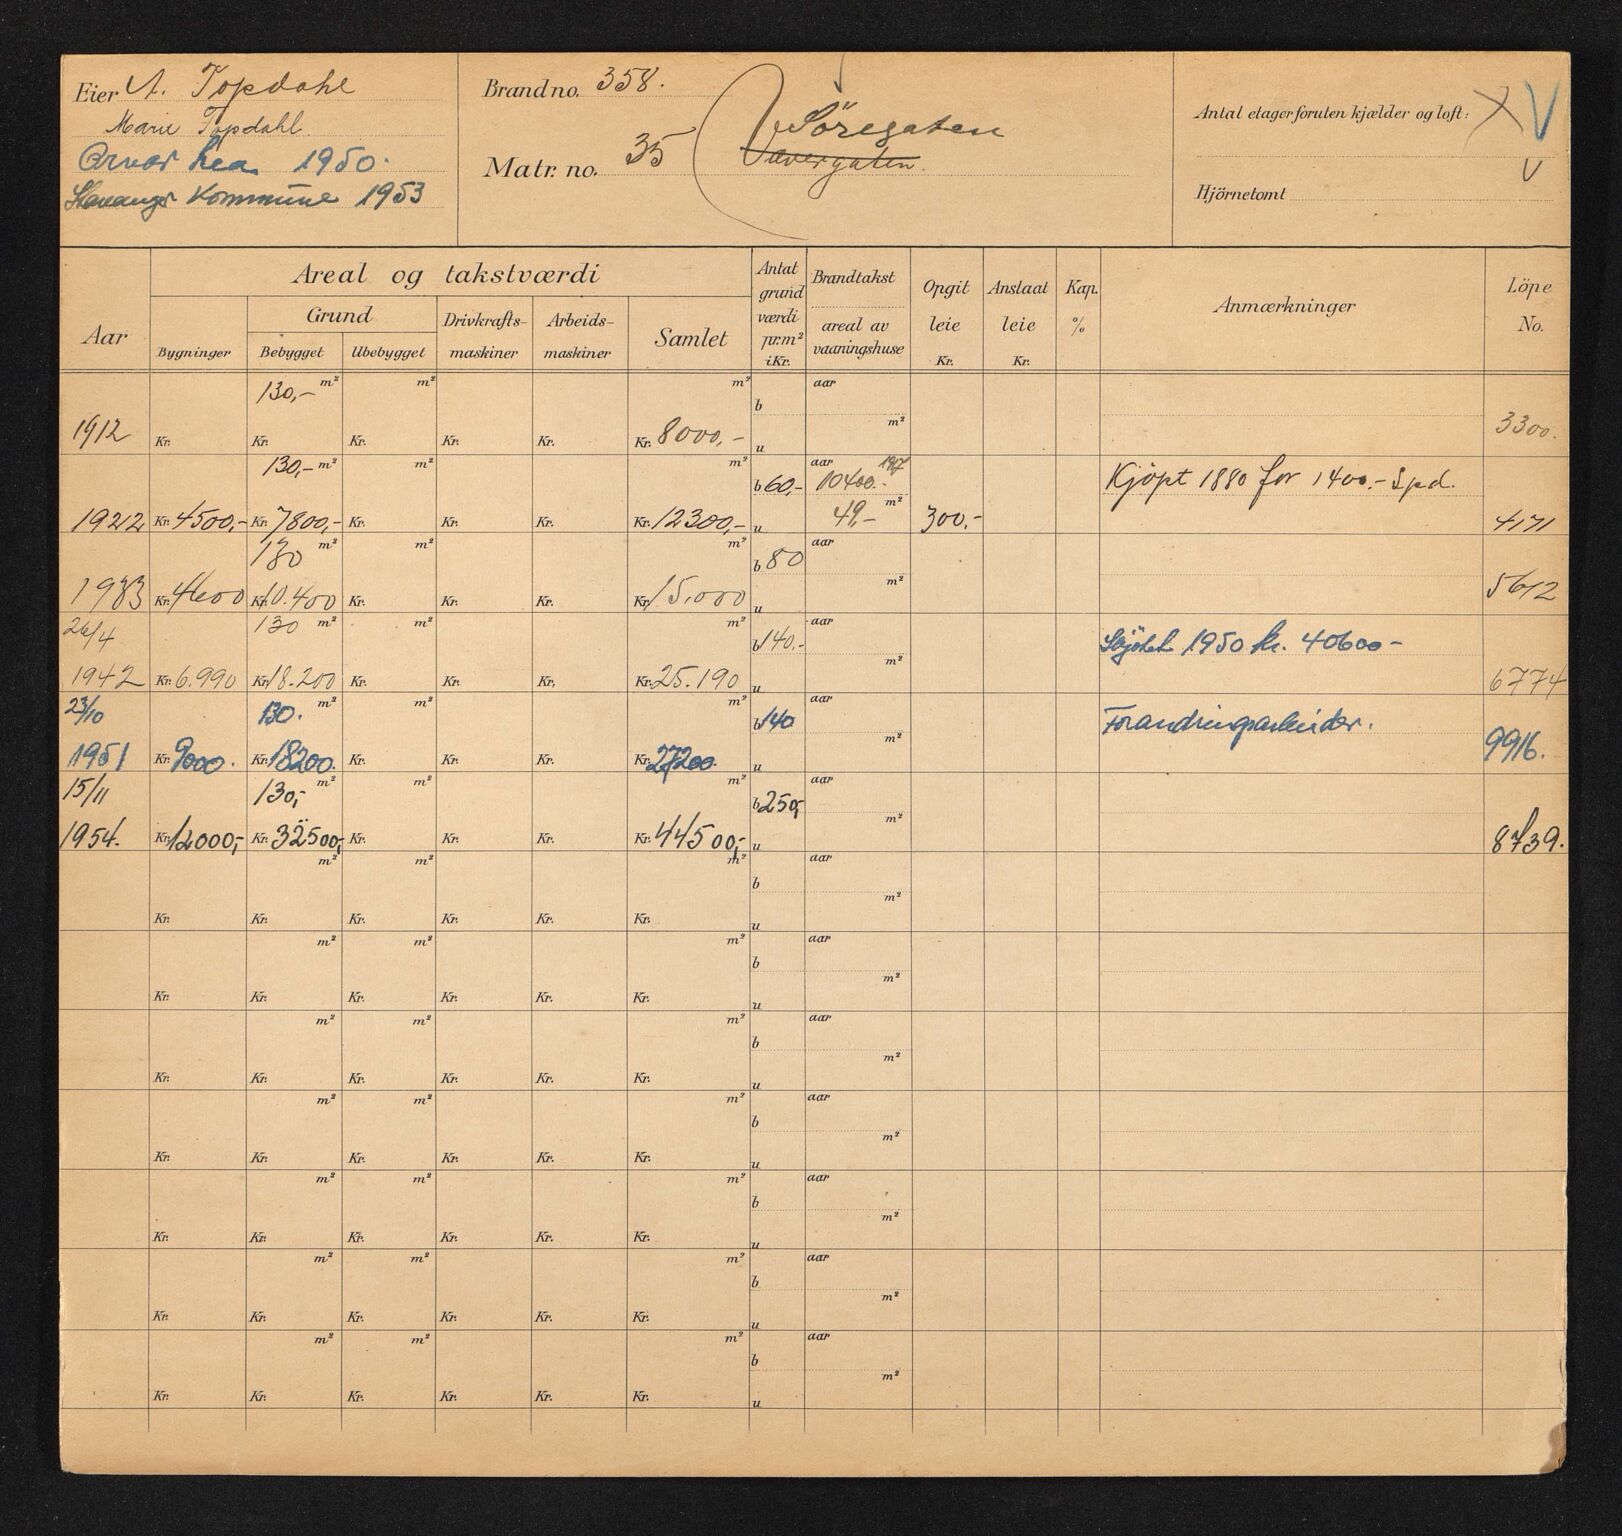 Eier A. Topdahl
Marie Topdahl.
Arvar Lea 1950.
Stavanger Kommune 1953
Brand no. 358.
Matr. no. 35
Søregaten
Antal etager foruten kjælder og loft:
Hjörnetomt
Areal og takstværdi
Aar
Grund
Bygninger
Bebygget
Ubebygget
Drivkrafts-
maskiner
Arbeids-
maskiner
Samlet
Antat
grund
værdi
pr.m²
i Kr.
Brandtakst
areal av
vaaningshuse
Opgit
leie
Kr.
Anslaat
leie
Kr.
Kap.
%
Anmærkninger
Löpe
No.
130,- m² m² m² b aar
1912 Kr. Kr. Kr. Kr. Kr. Kr. 8000,- u m² 3300.
130,- m² m² m² b 60,- aar 1917 10400.- Kjöpt 1880 for 1400.- Spd.
1922 Kr. 4500,- Kr. 7800,- Kr. Kr. Kr. Kr. 12300,- u 49,- m² 300,- 4171
130 m² m² m² b 80 aar
1933 Kr. 4600 Kr. 10.400 Kr. Kr. Kr. Kr. 15.000 u m² 5612
26/4 130 m² m² m² b 140.- aar Skjötet 1950 kr. 40600-
1942 Kr. 6.990 Kr. 18.200 Kr. Kr. Kr. Kr. 25.190 u m² 6774
23/10 130. m² m² m² b 140 aar Forandringsarbeider.
1951 Kr. 9000. Kr. 18200. Kr. Kr. Kr. Kr. 27200. u m² 9916.
15/11 130,- m² m² m² b 250,- aar
1954. Kr. 12000,- Kr. 32500,- Kr. Kr. Kr. Kr. 44500,- u m² 8739.
m² m² m² b aar
Kr. Kr. Kr. Kr. Kr. Kr. u m²
m² m² m² b aar
Kr. Kr. Kr. Kr. Kr. Kr. u m²
m² m² m² b aar
Kr. Kr. Kr. Kr. Kr. Kr. u m²
m² m² m² b aar
Kr. Kr. Kr. Kr. Kr. Kr. u m²
m² m² m² b aar
Kr. Kr. Kr. Kr. Kr. Kr. u m²
m² m² m² b aar
Kr. Kr. Kr. Kr. Kr. Kr. u m²
m² m² m² b aar
Kr. Kr. Kr. Kr. Kr. Kr. u m²